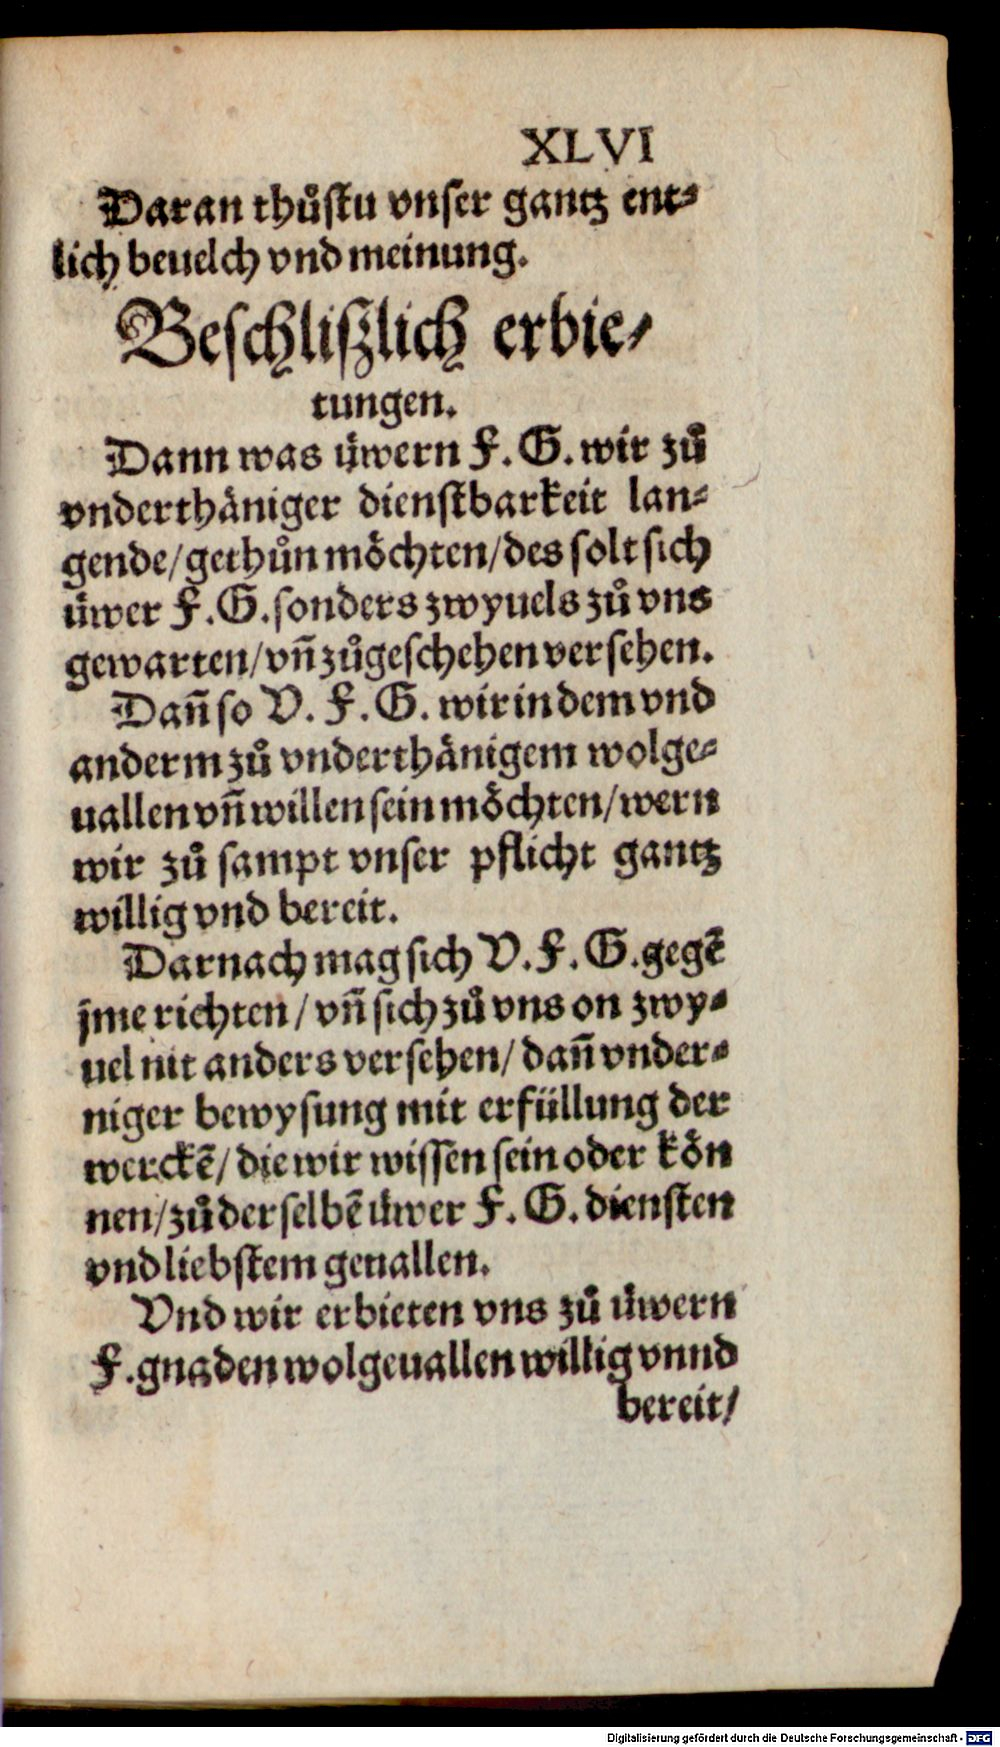 XLVI
Daran thůstu vnser gantz ent⸗
lich beuelch vnd meinung.
Beschlißlich erbie⸗
tungen.
Dann was üwern F. G. wir zů
vnderthäniger dienstbarkeit lan⸗
gende/gethůn möchten/des solt sich
üwer F. G. sonders zwyuels zů vns
gewarten/vn̄ zůgeschehen versehen.
Dan̄ so V. F. G. wir in dem vnd
anderm zů vnderthänigem wolge⸗
uallen vn̄ willen sein möchten/wern
wir zů sampt vnser pflicht gantz
willig vnd bereit.
Darnach mag sich V. F. G. gegē
jme richten/vn̄ sich zů vns on zwy⸗
uel nit anders versehen/dan̄ vnder⸗
niger bewysung mit erfüllung der
werckē/die wir wissen sein oder kön
nen/zů der selbē üwer F. G. diensten
vnd liebstem geuallen.
Vnd wir erbieten vns zů üwern
F. gnaden wolgeuallen willig vnnd
bereit/
Digitalisierung gefördert durch die Deutsche Forschungsgemeinschaft - DFG